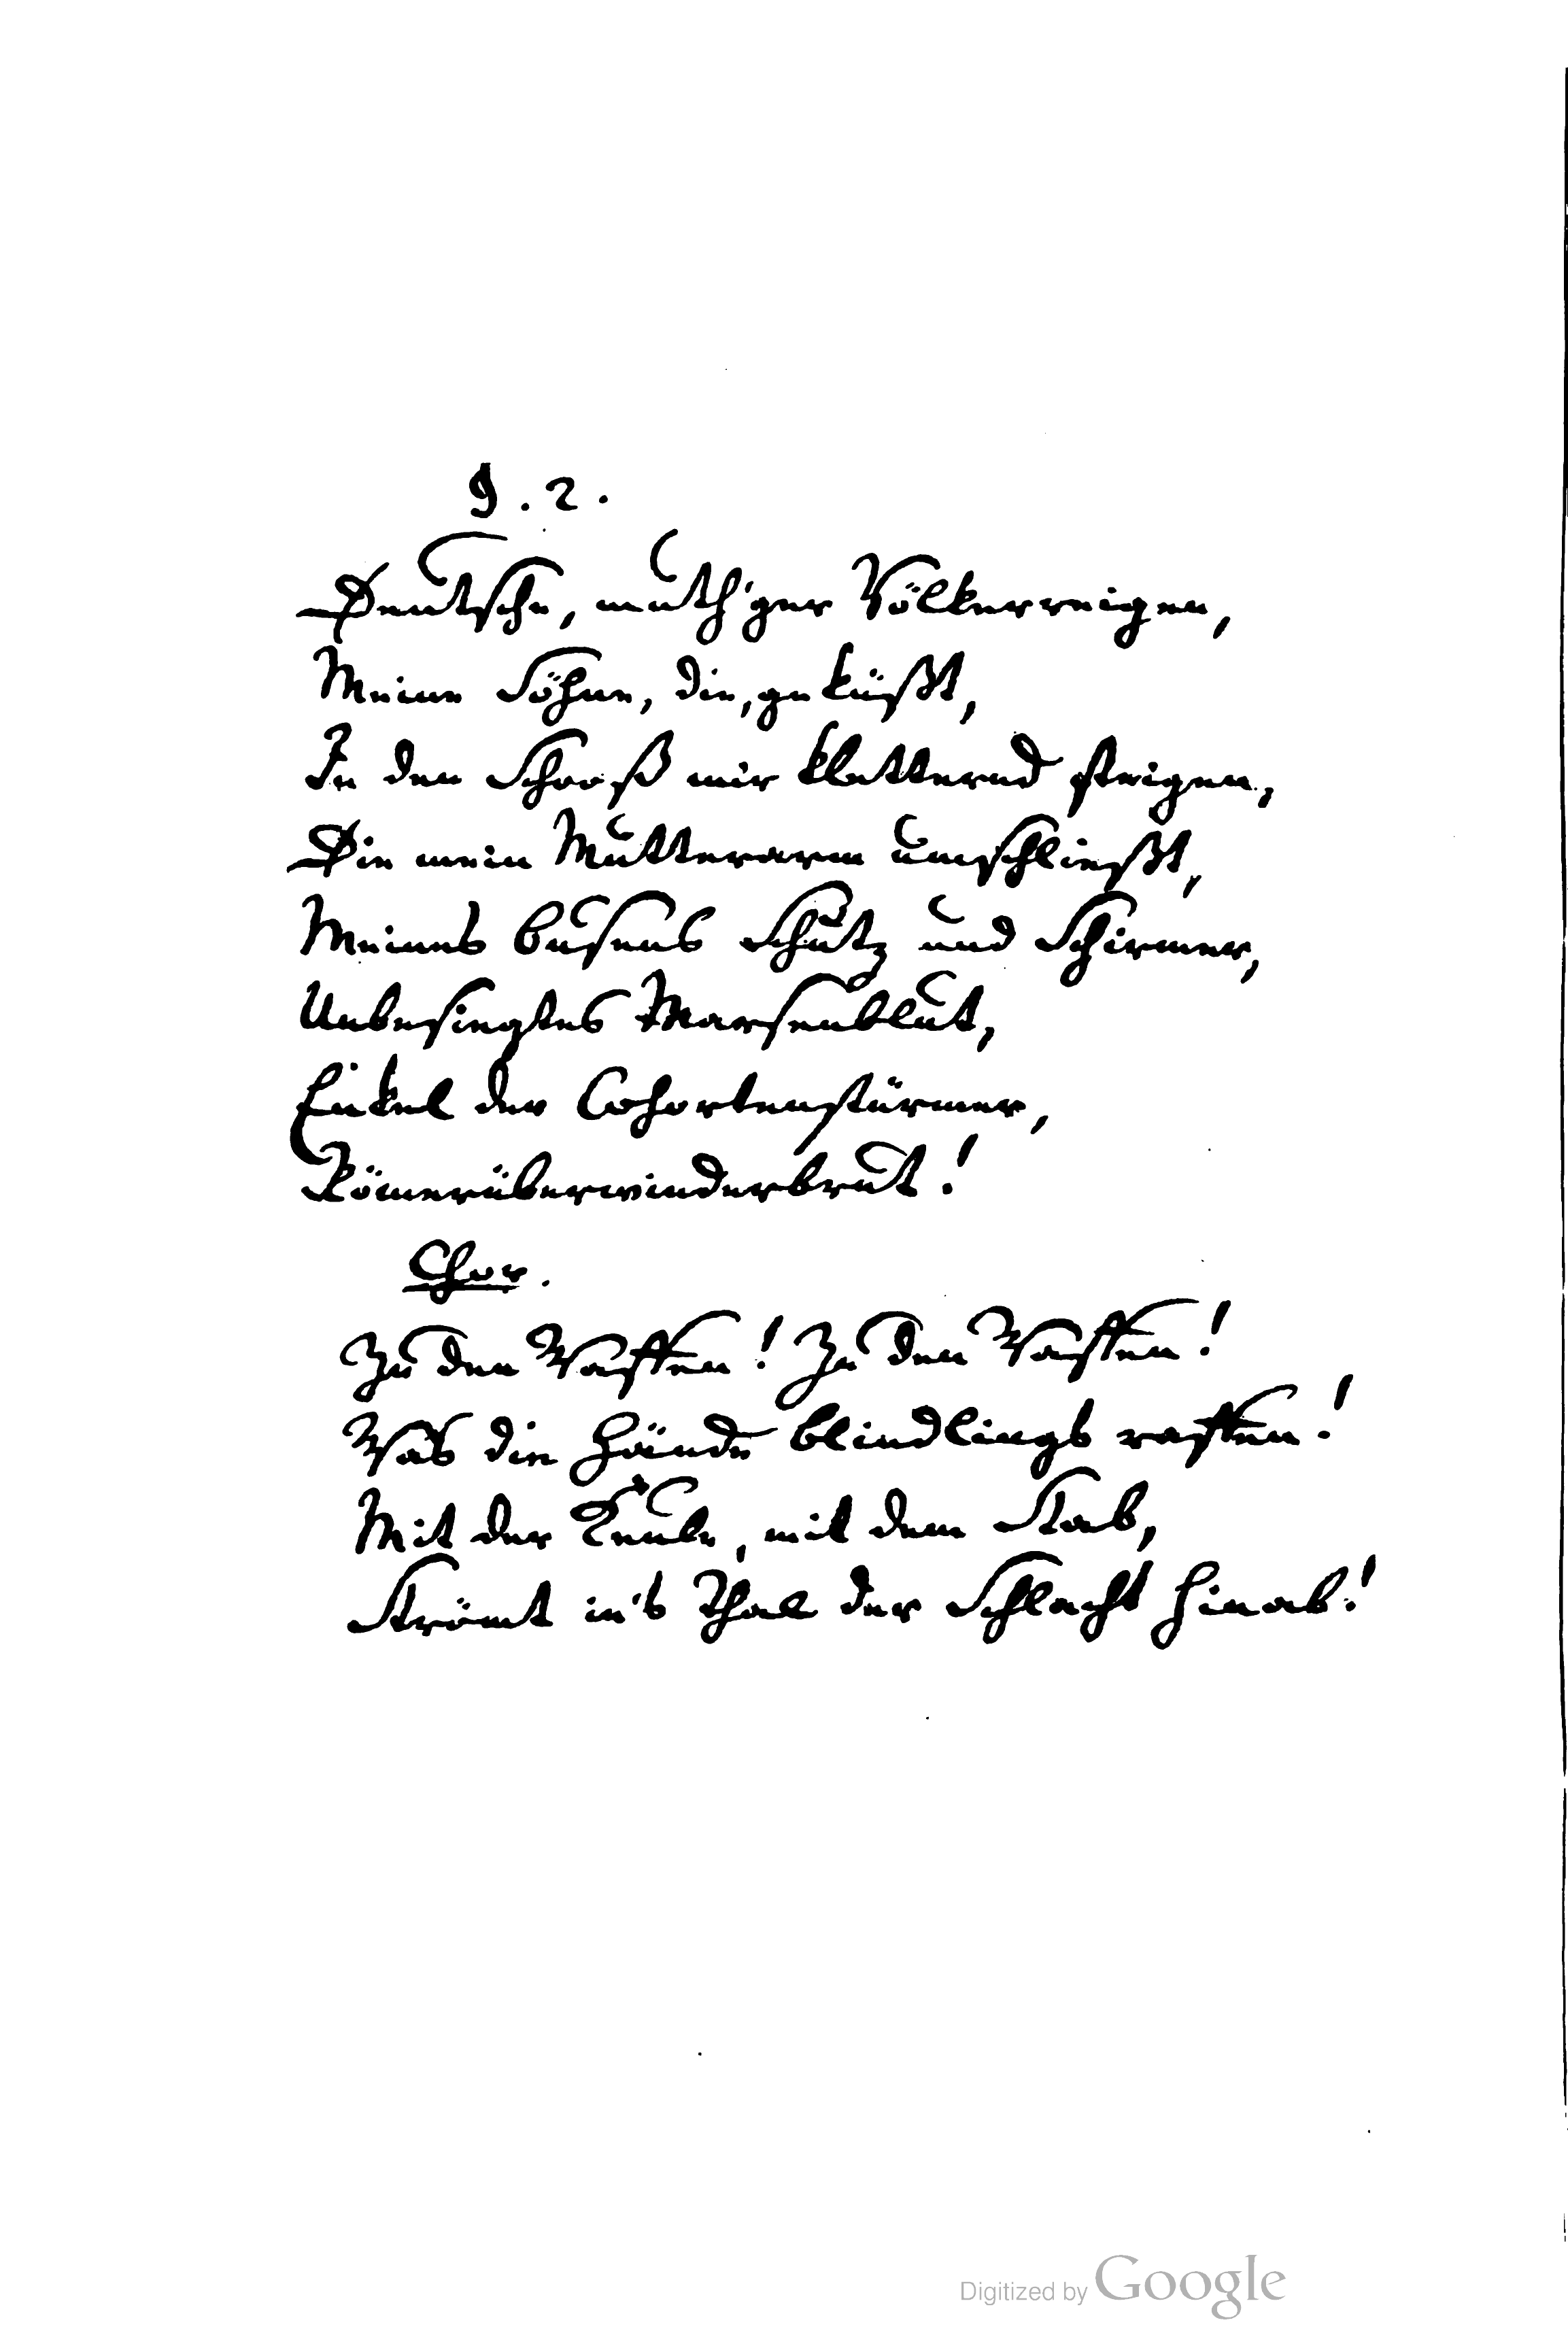 §. 2.
Deutsche, muth'ger Völkerreigen,
Meine Söhne, die, geküßt,
In den Schooß mir kletternd steigen,
Die mein Mutterarm umschließt,
Meines Busens Schutz und Schirmer,
Unbesiegtes Marsenblut,
Enkel der Cohortenstürmer,
Römerüberwinderbrut!
Chor.
Zu den Waffen! Zu den Waffen!
Was die Hände blindlings raffen!
Mit der Keule, mit dem Stab,
Strömt in's Thal der Schlacht hinab!
Digitized by Google